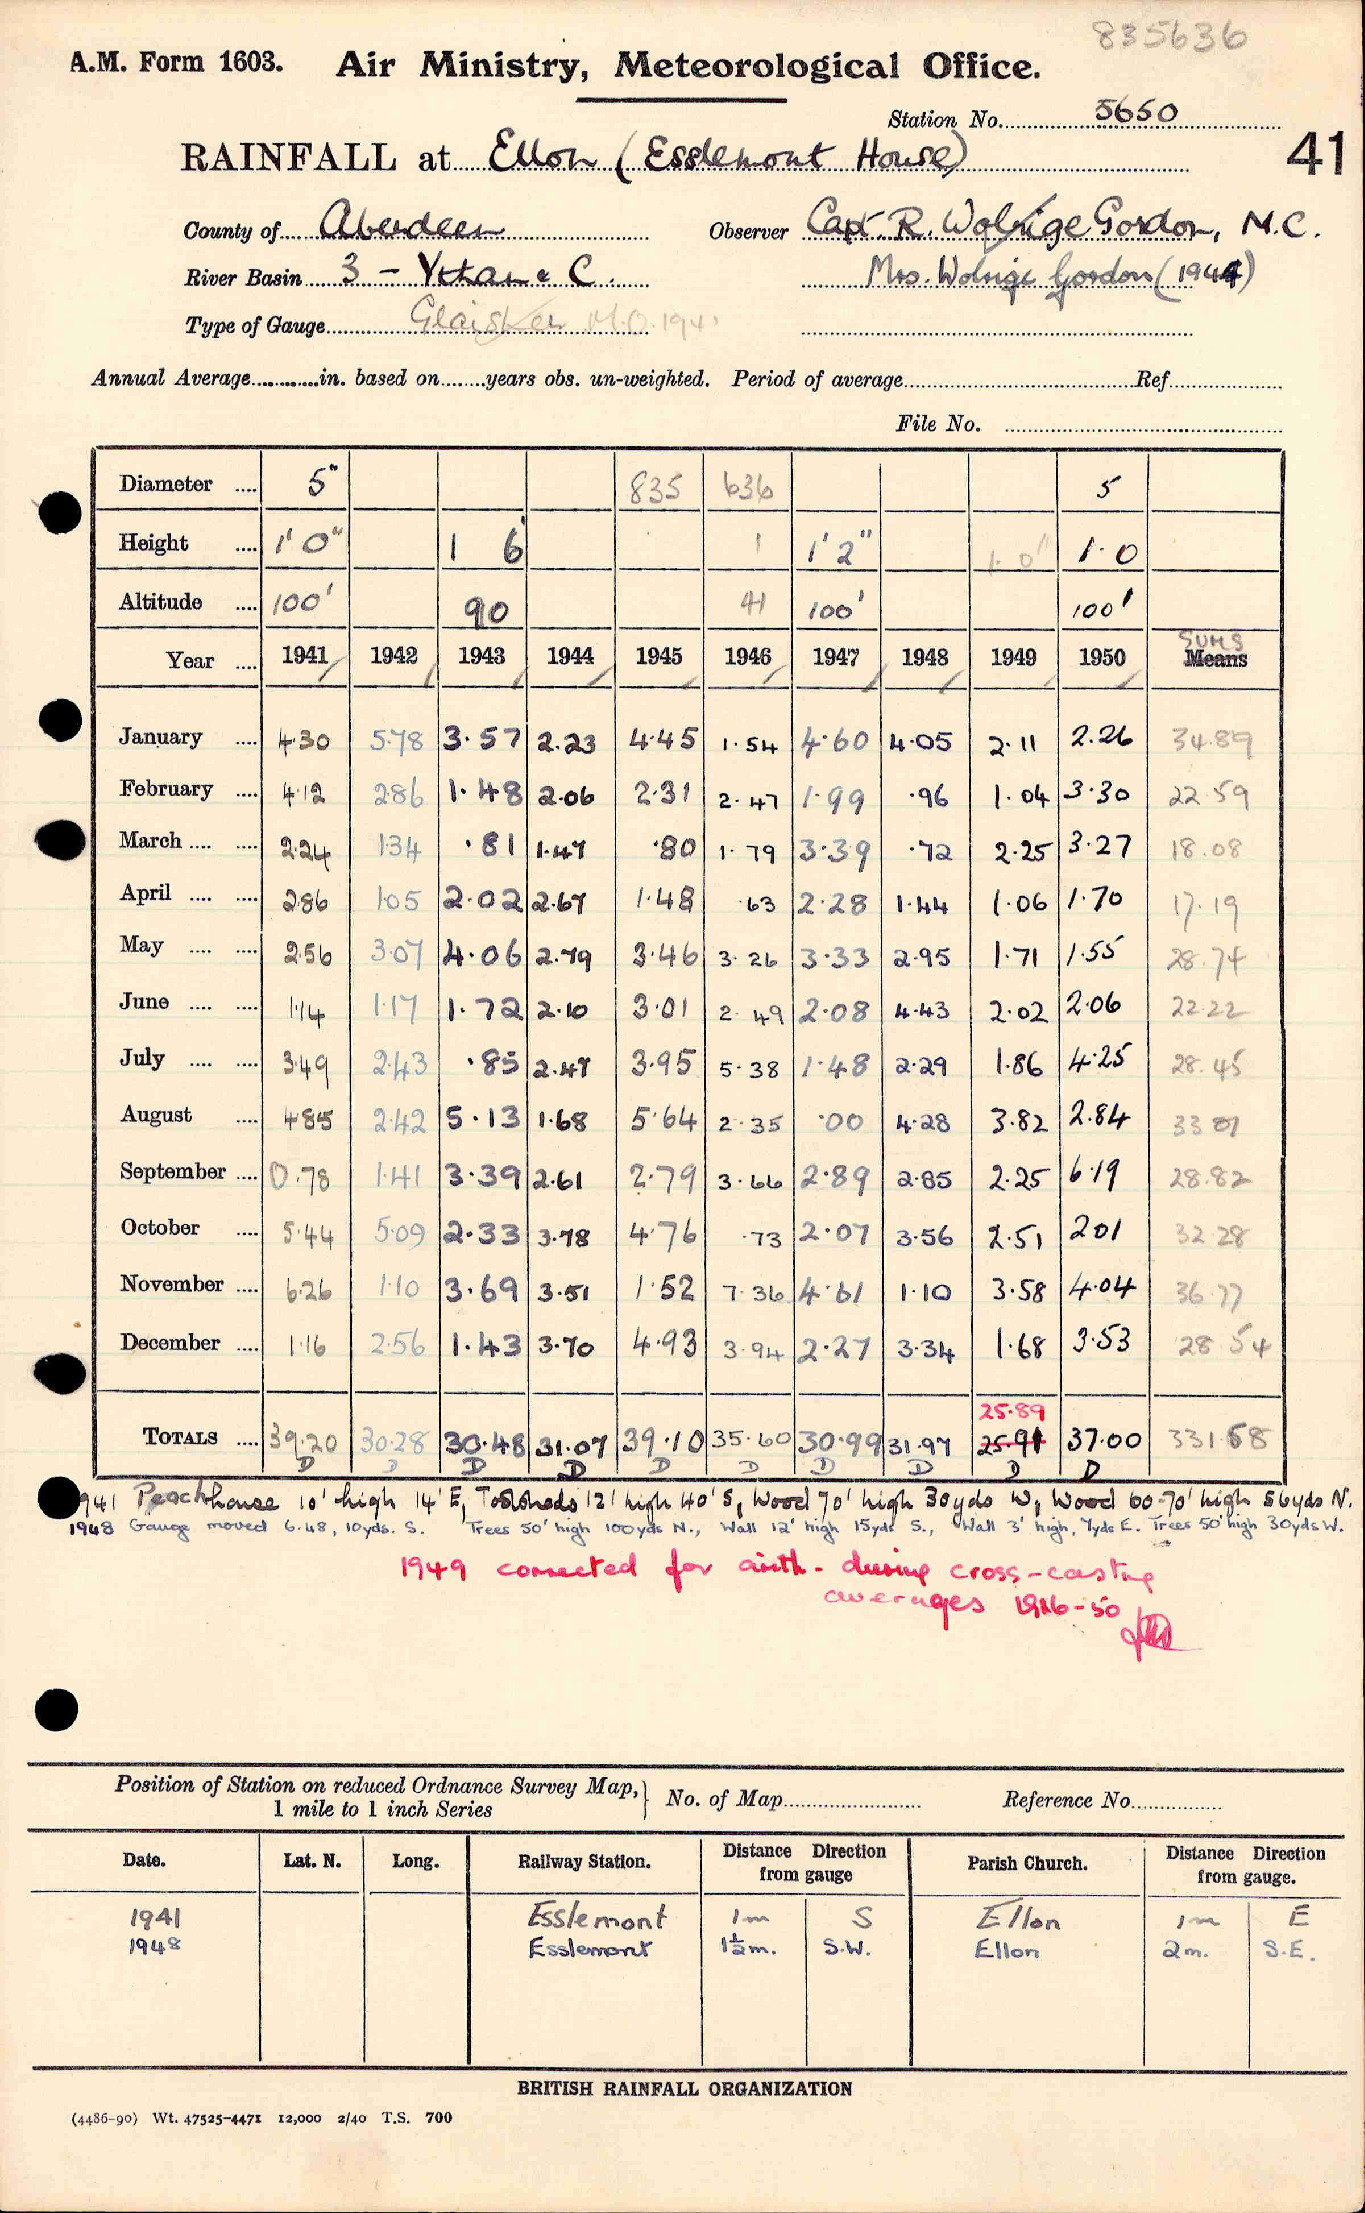 835636
A.M. Form 1603. Air Ministry, Meteorological Office.
Station No. 5650
RAINFALL at Ellon (Esslemont House) 41
County of Aberdeen Observer Capt. R. Wolrige Gordon, M.C.
River Basin 3 - Ythan & C. Mrs. Wolrige Gordon (1944)
Type of Gauge Glaisher M.O. 1941
Annual Average in. based on years obs. un-weighted. Period of average Ref
File No.
Diameter 5" 835 636 5
Height 1' 0" 1 6 1 1' 2" 1. 0" 1. 0
Altitude 100' 90 41 100' 100'
SUMS
Year 1941 1942 1943 1944 1945 1946 1947 1948 1949 1950 Means
January 4.30 5.78 3.57 2.23 4.45 1.54 4.60 4.05 2.11 2.26 34.89
February 4.12 2.86 1.48 2.06 2.31 2.47 1.99 .96 1.04 3.30 22.59
March 2.24 1.34 .81 1.47 .80 1.79 3.39 .72 2.25 3.27 18.08
April 2.86 1.05 2.02 2.67 1.48 .63 2.28 1.44 1.06 1.70 17.19
May 2.56 3.07 4.06 2.79 3.46 3.26 3.33 2.95 1.71 1.55 28.74
June 1.14 1.17 1.72 2.10 3.01 2.49 2.08 4.43 2.02 2.06 22.22
July 3.49 2.43 .85 2.47 3.95 5.38 1.48 2.29 1.86 4.25 28.45
August 4.85 2.42 5.13 1.68 5.64 2.35 .00 4.28 3.82 2.84 33.01
September 0.78 1.41 3.39 2.61 2.79 3.66 2.89 2.85 2.25 6.19 28.82
October 5.44 5.09 2.33 3.78 4.76 .73 2.07 3.56 2.51 2.01 32.28
November 6.26 1.10 3.69 3.51 1.52 7.36 4.61 1.10 3.58 4.04 36.77
December 1.16 2.56 1.43 3.70 4.93 3.94 2.27 3.34 1.68 3.53 28.54
25.89
TOTALS 39.20 30.28 30.48 31.07 39.10 35.60 30.99 31.97 25.91 37.00 331.58
D D D D D D D D D D
1941 Peachhouse 10' high 14' E, Toolsheds 12' high 40' S, Wood 70' high 30yds W, Wood 60-70' high 56yds N.
1948 Gauge moved 6.48, 10yds. S. Trees 50' high 100yds N., Wall 12' high 15yds S., Wall 3' high, 7yds E. Trees 50' high 30yds W.
1949 corrected for arith. during cross-casting
averages 1916-50
Position of Station on reduced Ordnance Survey Map, No. of Map Reference No.
1 mile to 1 inch Series
Date. Lat. N. Long. Railway Station. Distance Direction from gauge Parish Church. Distance Direction from gauge.
1941 Esslemont 1m S Ellon 1m E
1948 Esslemont 1½m. S.W. Ellon 2m. S.E.
BRITISH RAINFALL ORGANIZATION
(4486-90) Wt. 47525-4471 12,000 2/40 T.S. 700